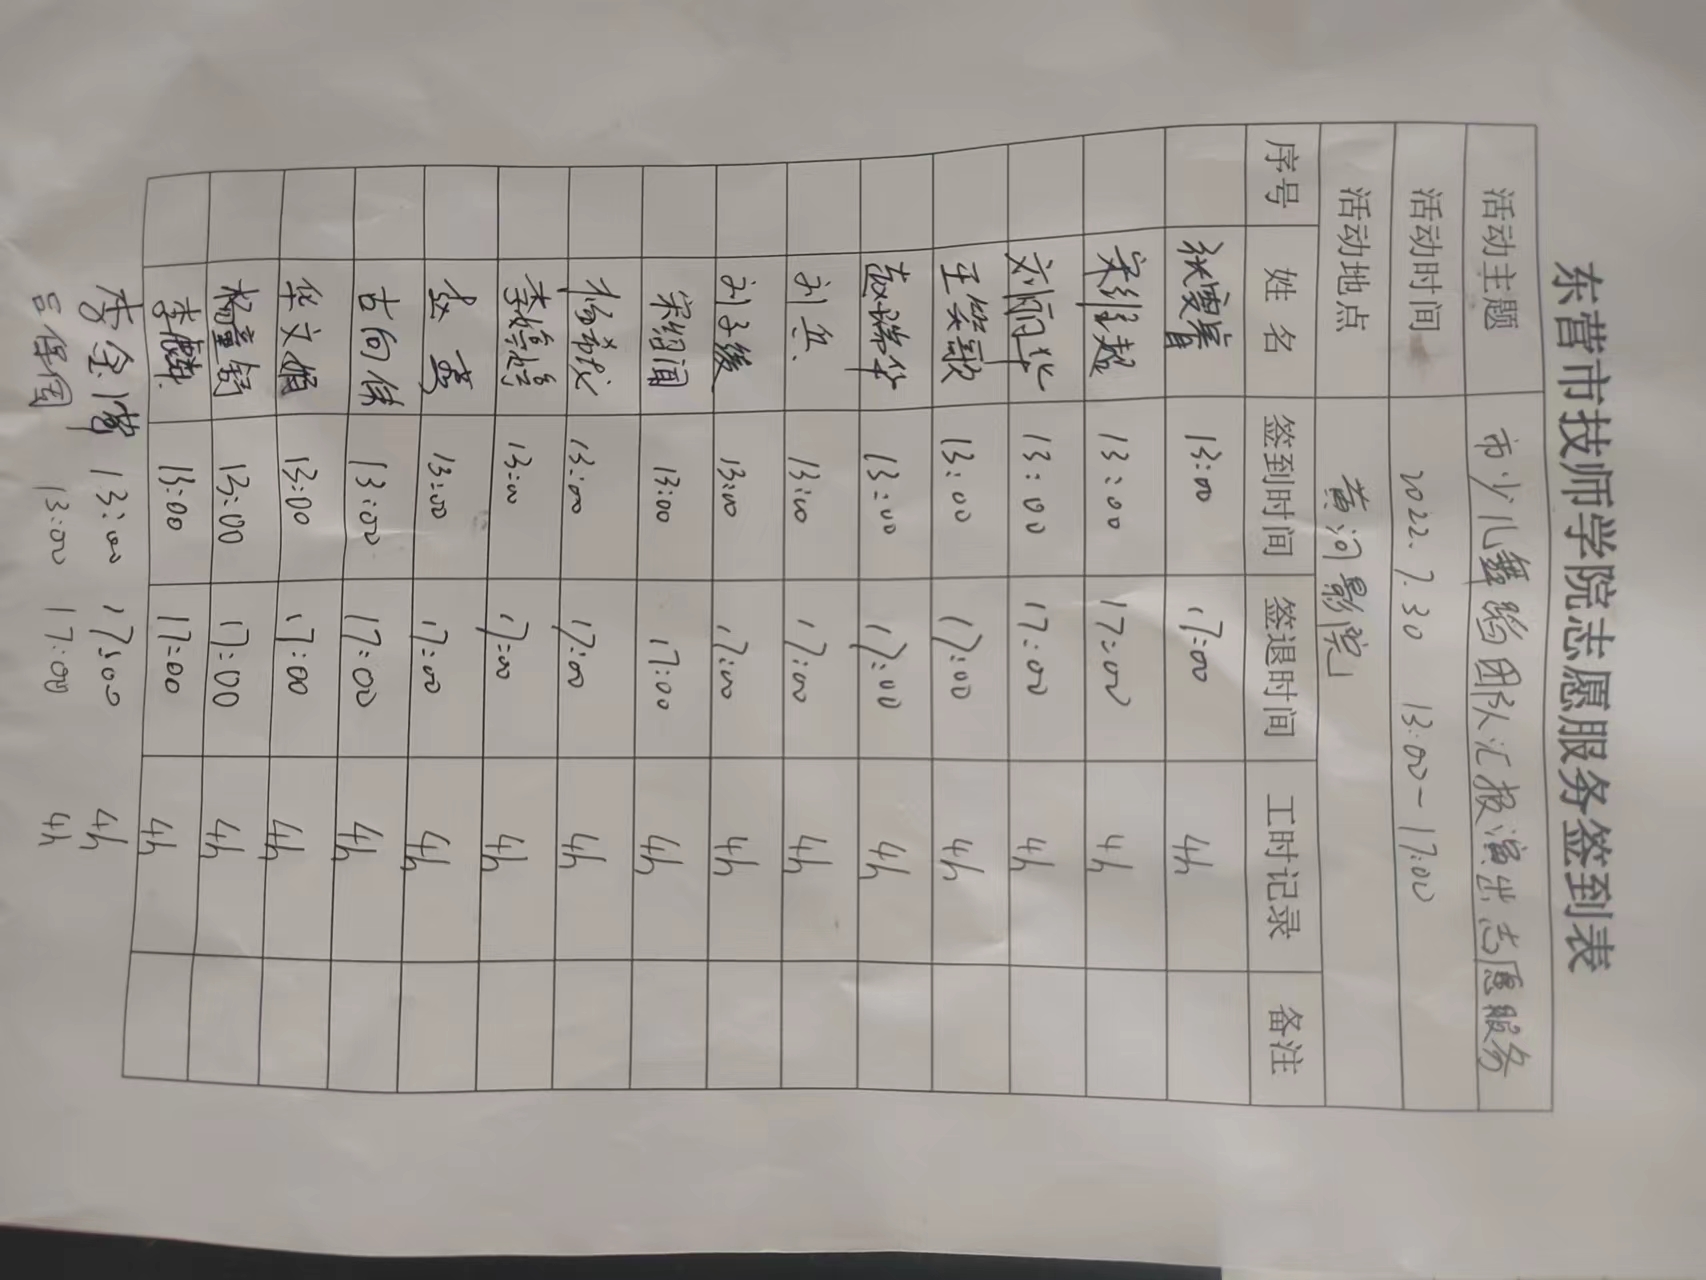 东营市技师学院志愿服务签到表
活动主题 市少儿舞蹈团队汇报演出志愿服务
活动时间 2022.7.30 13:00-17:00
活动地点 黄河影院
序号 姓名 签到时间 签退时间 工时记录 备注
13:00 17:00 4h
宋维超 13:00 17:00 4h
刘丽华 13:00 17:00 4h
王笑歌 13:00 17:00 4h
赵瑞华 13:00 17:00 4h
刘兵 13:00 17:00 4h
刘子缓 13:00 17:00 4h
13:00 17:00 4h
13:00 17:00 4h
李婷婷 13:00 17:00 4h
赵 13:00 17:00 4h
古向 13:00 17:00 4h
华文娟 13:00 17:00 4h
杨童 13:00 17:00 4h
李 13:00 17:00 4h
李金 13:00 17:00 4h
吕保国 13:00 17:00 4h